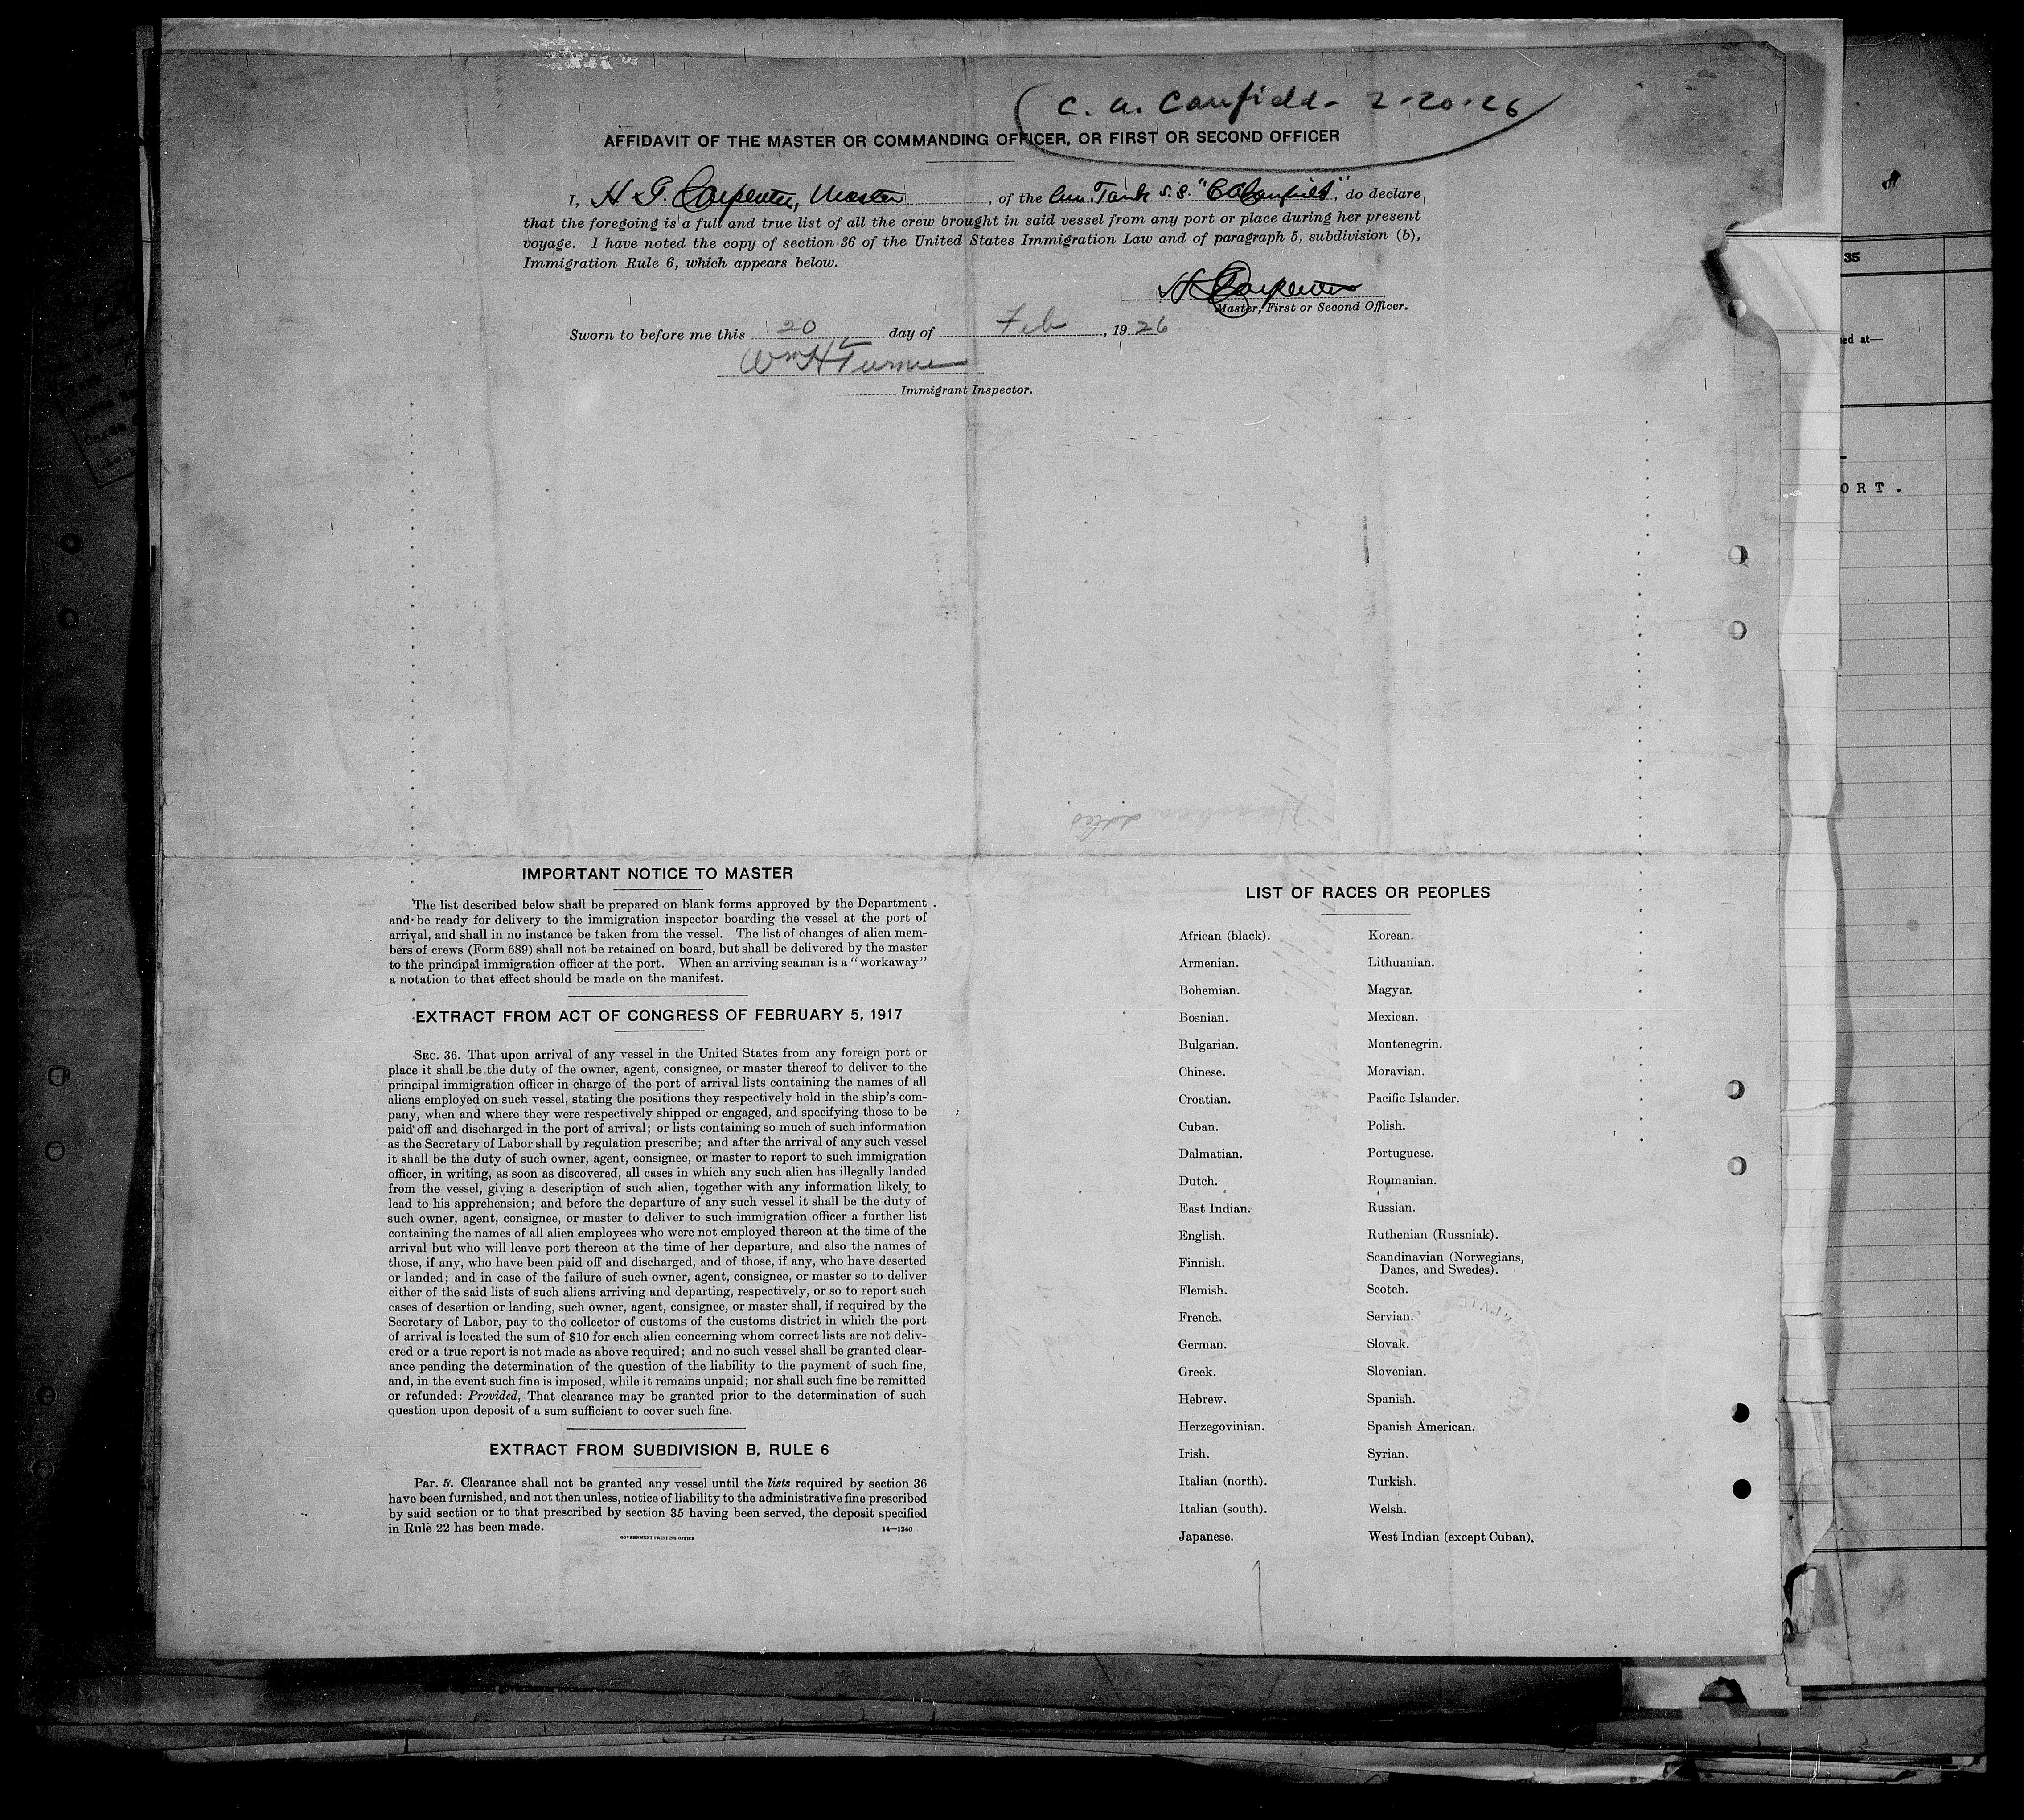 C. A. Canfield - 2-20-26
AFFIDAVIT OF THE MASTER OR COMMANDING OFFICER, OR FIRST OR SECOND OFFICER
I, H. T. Carpenter, Master, of the Am. Tank S.S. "CA Canfield", do declare
that the foregoing is a full and true list of all the crew brought in said vessel from any port or place during her present
voyage. I have noted the copy of section 36 of the United States Immigration Law and of paragraph 5, subdivision (b),
Immigration Rule 6, which appears below.
H T Carpenter
Master, First or Second Officer.
Sworn to before me this 20 day of Feb, 1926
Wm H Turner
Immigrant Inspector.
IMPORTANT NOTICE TO MASTER
The list described below shall be prepared on blank forms approved by the Department
and be ready for delivery to the immigration inspector boarding the vessel at the port of
arrival, and shall in no instance be taken from the vessel. The list of changes of alien mem-
bers of crews (Form 689) shall not be retained on board, but shall be delivered by the master
to the principal immigration officer at the port. When an arriving seaman is a "workaway"
a notation to that effect should be made on the manifest.
EXTRACT FROM ACT OF CONGRESS OF FEBRUARY 5, 1917
SEC. 36. That upon arrival of any vessel in the United States from any foreign port or
place it shall be the duty of the owner, agent, consignee, or master thereof to deliver to the
principal immigration officer in charge of the port of arrival lists containing the names of all
aliens employed on such vessel, stating the positions they respectively hold in the ship's com-
pany, when and where they were respectively shipped or engaged, and specifying those to be
paid off and discharged in the port of arrival; or lists containing so much of such information
as the Secretary of Labor shall by regulation prescribe; and after the arrival of any such vessel
it shall be the duty of such owner, agent, consignee, or master to report to such immigration
officer, in writing, as soon as discovered, all cases in which any such alien has illegally landed
from the vessel, giving a description of such alien, together with any information likely to
lead to his apprehension; and before the departure of any such vessel it shall be the duty of
such owner, agent, consignee, or master to deliver to such immigration officer a further list
containing the names of all alien employees who were not employed thereon at the time of the
arrival but who will leave port thereon at the time of her departure, and also the names of
those, if any, who have been paid off and discharged, and of those, if any, who have deserted
or landed; and in case of the failure of such owner, agent, consignee, or master so to deliver
either of the said lists of such aliens arriving and departing, respectively, or so to report such
cases of desertion or landing, such owner, agent, consignee, or master shall, if required by the
Secretary of Labor, pay to the collector of customs of the customs district in which the port
of arrival is located the sum of $10 for each alien concerning whom correct lists are not deliv-
ered or a true report is not made as above required; and no such vessel shall be granted clear-
ance pending the determination of the question of the liability to the payment of such fine,
and, in the event such fine is imposed, while it remains unpaid; nor shall such fine be remitted
or refunded: Provided, That clearance may be granted prior to the determination of such
question upon deposit of a sum sufficient to cover such fine.
EXTRACT FROM SUBDIVISION B, RULE 6
Par. 5. Clearance shall not be granted any vessel until the lists required by section 36
have been furnished, and not then unless, notice of liability to the administrative fine prescribed
by said section or to that prescribed by section 35 having been served, the deposit specified
in Rule 22 has been made.
14—1240
GOVERNMENT PRINTING OFFICE
LIST OF RACES OR PEOPLES
African (black).
Armenian.
Bohemian.
Bosnian.
Bulgarian.
Chinese.
Croatian.
Cuban.
Dalmatian.
Dutch.
East Indian.
English.
Finnish.
Flemish.
French.
German.
Greek.
Hebrew.
Herzegovinian.
Irish.
Italian (north).
Italian (south).
Japanese.
Korean.
Lithuanian.
Magyar.
Mexican.
Montenegrin.
Moravian.
Pacific Islander.
Polish.
Portuguese.
Roumanian.
Russian.
Ruthenian (Russniak).
Scandinavian (Norwegians,
Danes, and Swedes).
Scotch.
Servian.
Slovak.
Slovenian.
Spanish.
Spanish American.
Syrian.
Turkish.
Welsh.
West Indian (except Cuban).
35
ed at—
ORT.